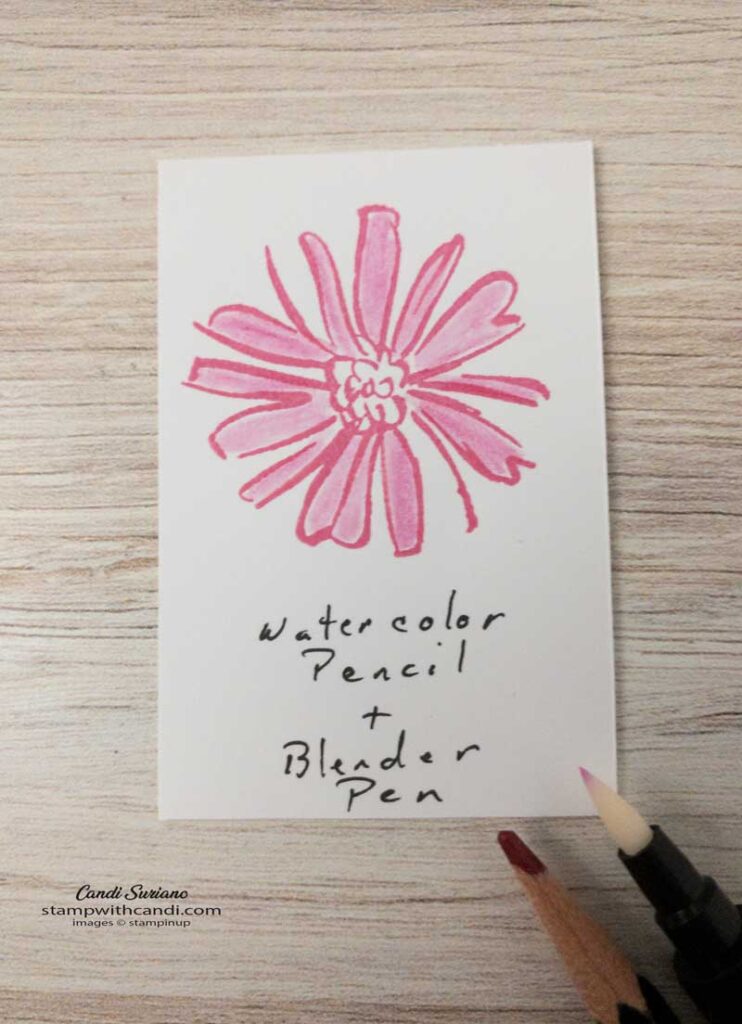 watercolor
Pencil
+
Blender
Pen
Candi Suriano
stampwithcandi.com
images © stampinup